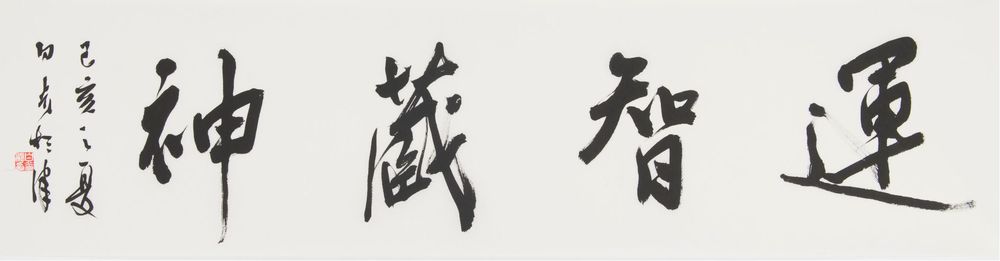 運智藏神
己亥之夏
白亮於津